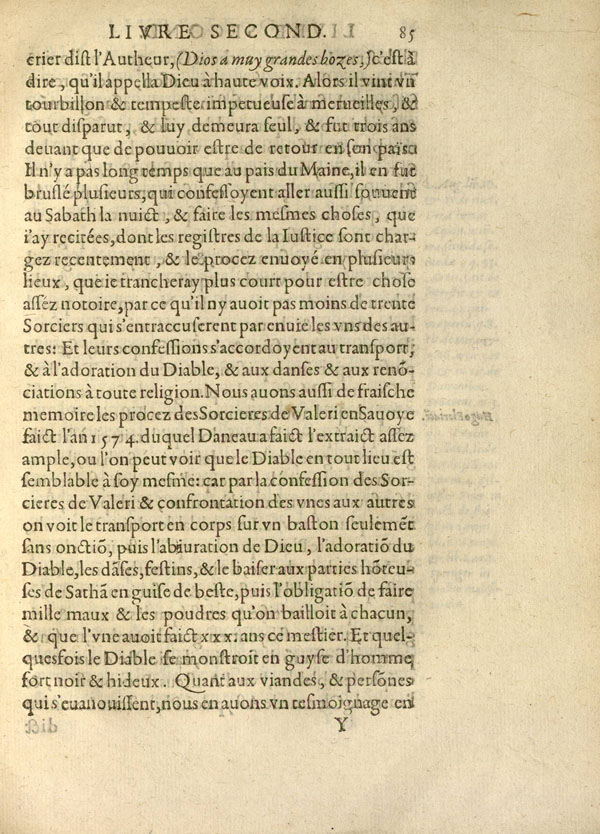 LIVRE SECOND. 85
crier dist l'Autheur, (Dios a muy grandes bozes,) c'est à
dire, qu'il appella Dieu à haute voix. Alors il vint vn
tourbillon & tempeste impetueuse à merueilles, &
tout disparut, & luy demeura seul, & fut trois ans
deuant que de pouuoir estre de retour en son païs.
Il n'y a pas long temps que au pais du Maine, il en fut
bruslé plusieurs, qui confessoyent aller aussi souuent
au Sabath la nuict, & faire les mesmes choses, que
i'ay recitées, dont les registres de la Iustice sont char-
gez recentement, & le procez enuoyé en plusieurs
lieux, que ie trancheray plus court pour estre chose
assez notoire, par ce qu'il n'y auoit pas moins de trente
Sorciers qui s'entraccuserent par enuie les vns des au-
tres: Et leurs confessions s'accordoyent au transport,
& à l'adoration du Diable, & aux danses & aux renō-
ciations à toute religion. Nous auons aussi de fraische
memoire les procez des Sorcieres de Valeri en Sauoye
faict l'an 1574. duquel Daneau a faict l'extraict assez
ample, ou l'on peut voir que le Diable en tout lieu est
semblable à soy mesme: car par la confession des Sor-
cieres de Valeri & confrontation des vnes aux autres
on voit le transport en corps sur vn baston seulemēt
sans onctiō, puis l'abiuration de Dieu, l'adoratiō du
Diable, les dāses, festins, & le baiser aux parties hōteu-
ses de Sathā en guise de beste, puis l'obligatiō de faire
mille maux & les poudres qu'on bailloit à chacun,
& que l'vne auoit faict xxx. ans ce mestier. Et quel-
quesfois le Diable se monstroit en guyse d'homme
fort noir & hideux. Quant aux viandes, & persōnes
qui s'euanouissent, nous en auons vn tesmoignage en
Y